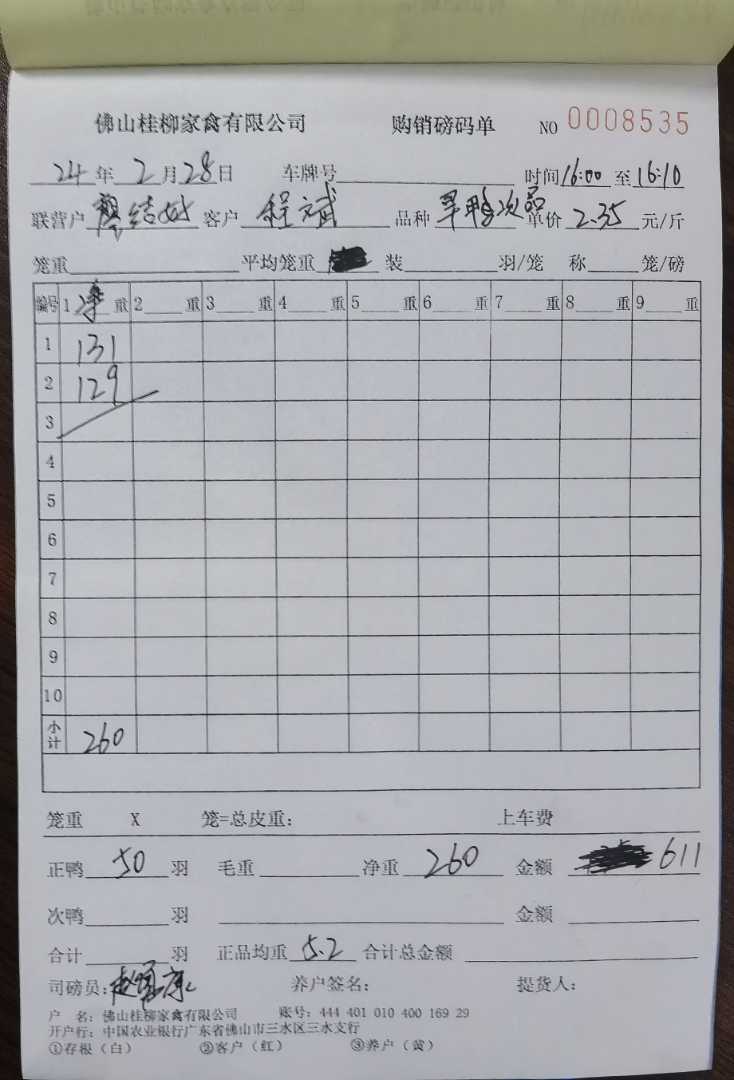 佛山桂柳家禽有限公司 购销磅码单 NO 0008535
24年2月28日 车牌号 时间16:00至16:10
联营户 结好 客户 程斌 品种 旱鸭次品 单价 2.35 元/斤
笼重 平均笼重 装 羽/笼 称 笼/磅
编号 1 净 重 2 重 3 重 4 重 5 重 6 重 7 重 8 重 9 重
1 131
2 129
3
4
5
6
7
8
9
10
小计 260
笼重 X 笼=总皮重： 上车费
正鸭 50 羽 毛重 净重 260 金额 611
次鸭 羽 金额
合计 羽 正品均重 5.2 合计总金额
司磅员： 养户签名： 提货人：
户 名：佛山桂柳家禽有限公司 账号：444 401 010 400 169 29
开户行：中国农业银行广东省佛山市三水区三水支行
①存根（白） ②客户（红） ③养户（黄）